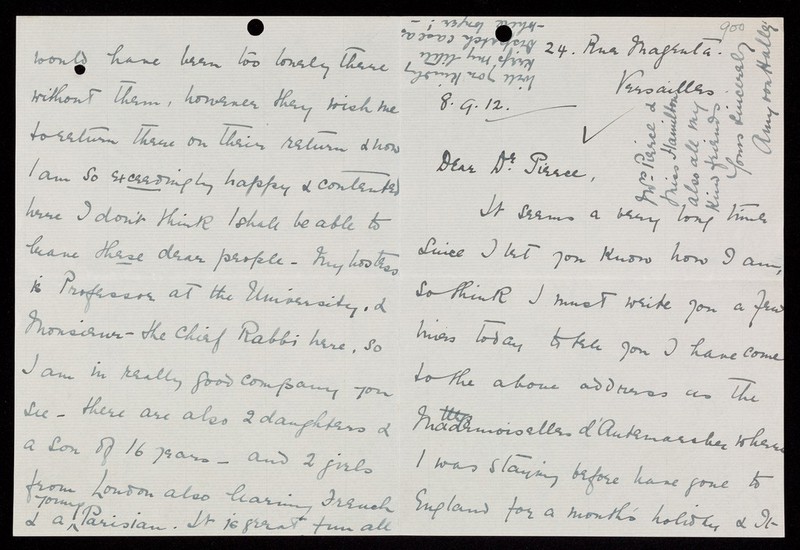 24. Rue Magenta.
Versailles.
8. 9. 12.
Dear Dr. Pierce,
It seems a very long time
since I let you know how I am,
so think I must write you a few
lines today to tell you I have come
to the above address as the
Mademoiselles d'Antemaesher where
I was staying before have gone to
England for a month's holiday & It
would have been too lonely there
without them, however they wish me
to return there on their return & now
I am so exceedingly happy & contented
here I don't think I shall be able to
leave these dear people - My hostess
is Professor at the University, &
Monsieur - the Chief Rabbi here, so
I am in really good company you
see - there are also 2 daughters &
a son of 16 years - and 2 girls
from London also learning French
& a young Parisian. It is great fun all
Will you kindly
keep my little
dispatch case a
while longer! -
Mrs. Pierce &
Miss Hamilton
also all my
kind friends.
Yours sincerely
Amy
900